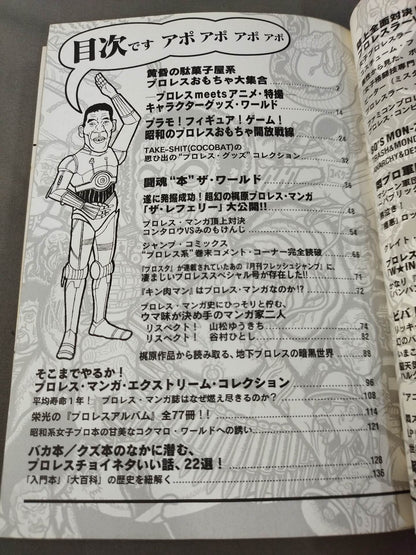 目次です アポ アポ アポ アポ
黄昏の駄菓子屋系
プロレスおもちゃ大集合 2
プロレスmeetsアニメ・特撮
キャラクターグッズ・ワールド 14
プラモ！フィギュア！ゲーム！
昭和のプロレスおもちゃ開放戦線 24
TAKE-SHIT(COCOBAT)の
思ひ出の“プロレス・グッズ”コレクション
闘魂“本”ザ・ワールド
遂に発掘成功！超幻の梶原プロレス・マンガ
「ザ・レフェリー」大公開!!
プロレス・マンガ頂上対決
コンタロウVSみのもけんじ
ジャンプ・コミックス
“プロレス系”巻末コメント・コーナー完全読破 66
『プロスタ』が連載されていたあの『月刊フレッシュジャンプ』に、
凄まじいプロレススペシャル号が存在した!! 71
『キン肉マン』はプロレス・マンガなのか!? 72
プロレス・マンガ史にひっそりと佇む、
ウマ味が決め手のマンガ家二人
リスペクト！ 山松ゆうきち 74
リスペクト！ 谷村ひとし 78
梶原作品から読み取る、地下プロレスの暗黒世界 88
そこまでやるか！
プロレス・マンガ・エクストリーム・コレクション 96
平均寿命1年！ プロレス・マンガ誌はなぜ燃え尽きるのか？ 108
栄光の『プロレスアルバム』全77冊!! 114
昭和系女子プロ本の甘美なコクマロ・ワールドへの誘い 121
バカ本／クズ本のなかに潜む、
プロレスチョイネタいい話、22選！ 128
「入門本」「大百科」の歴史を紐解く 136